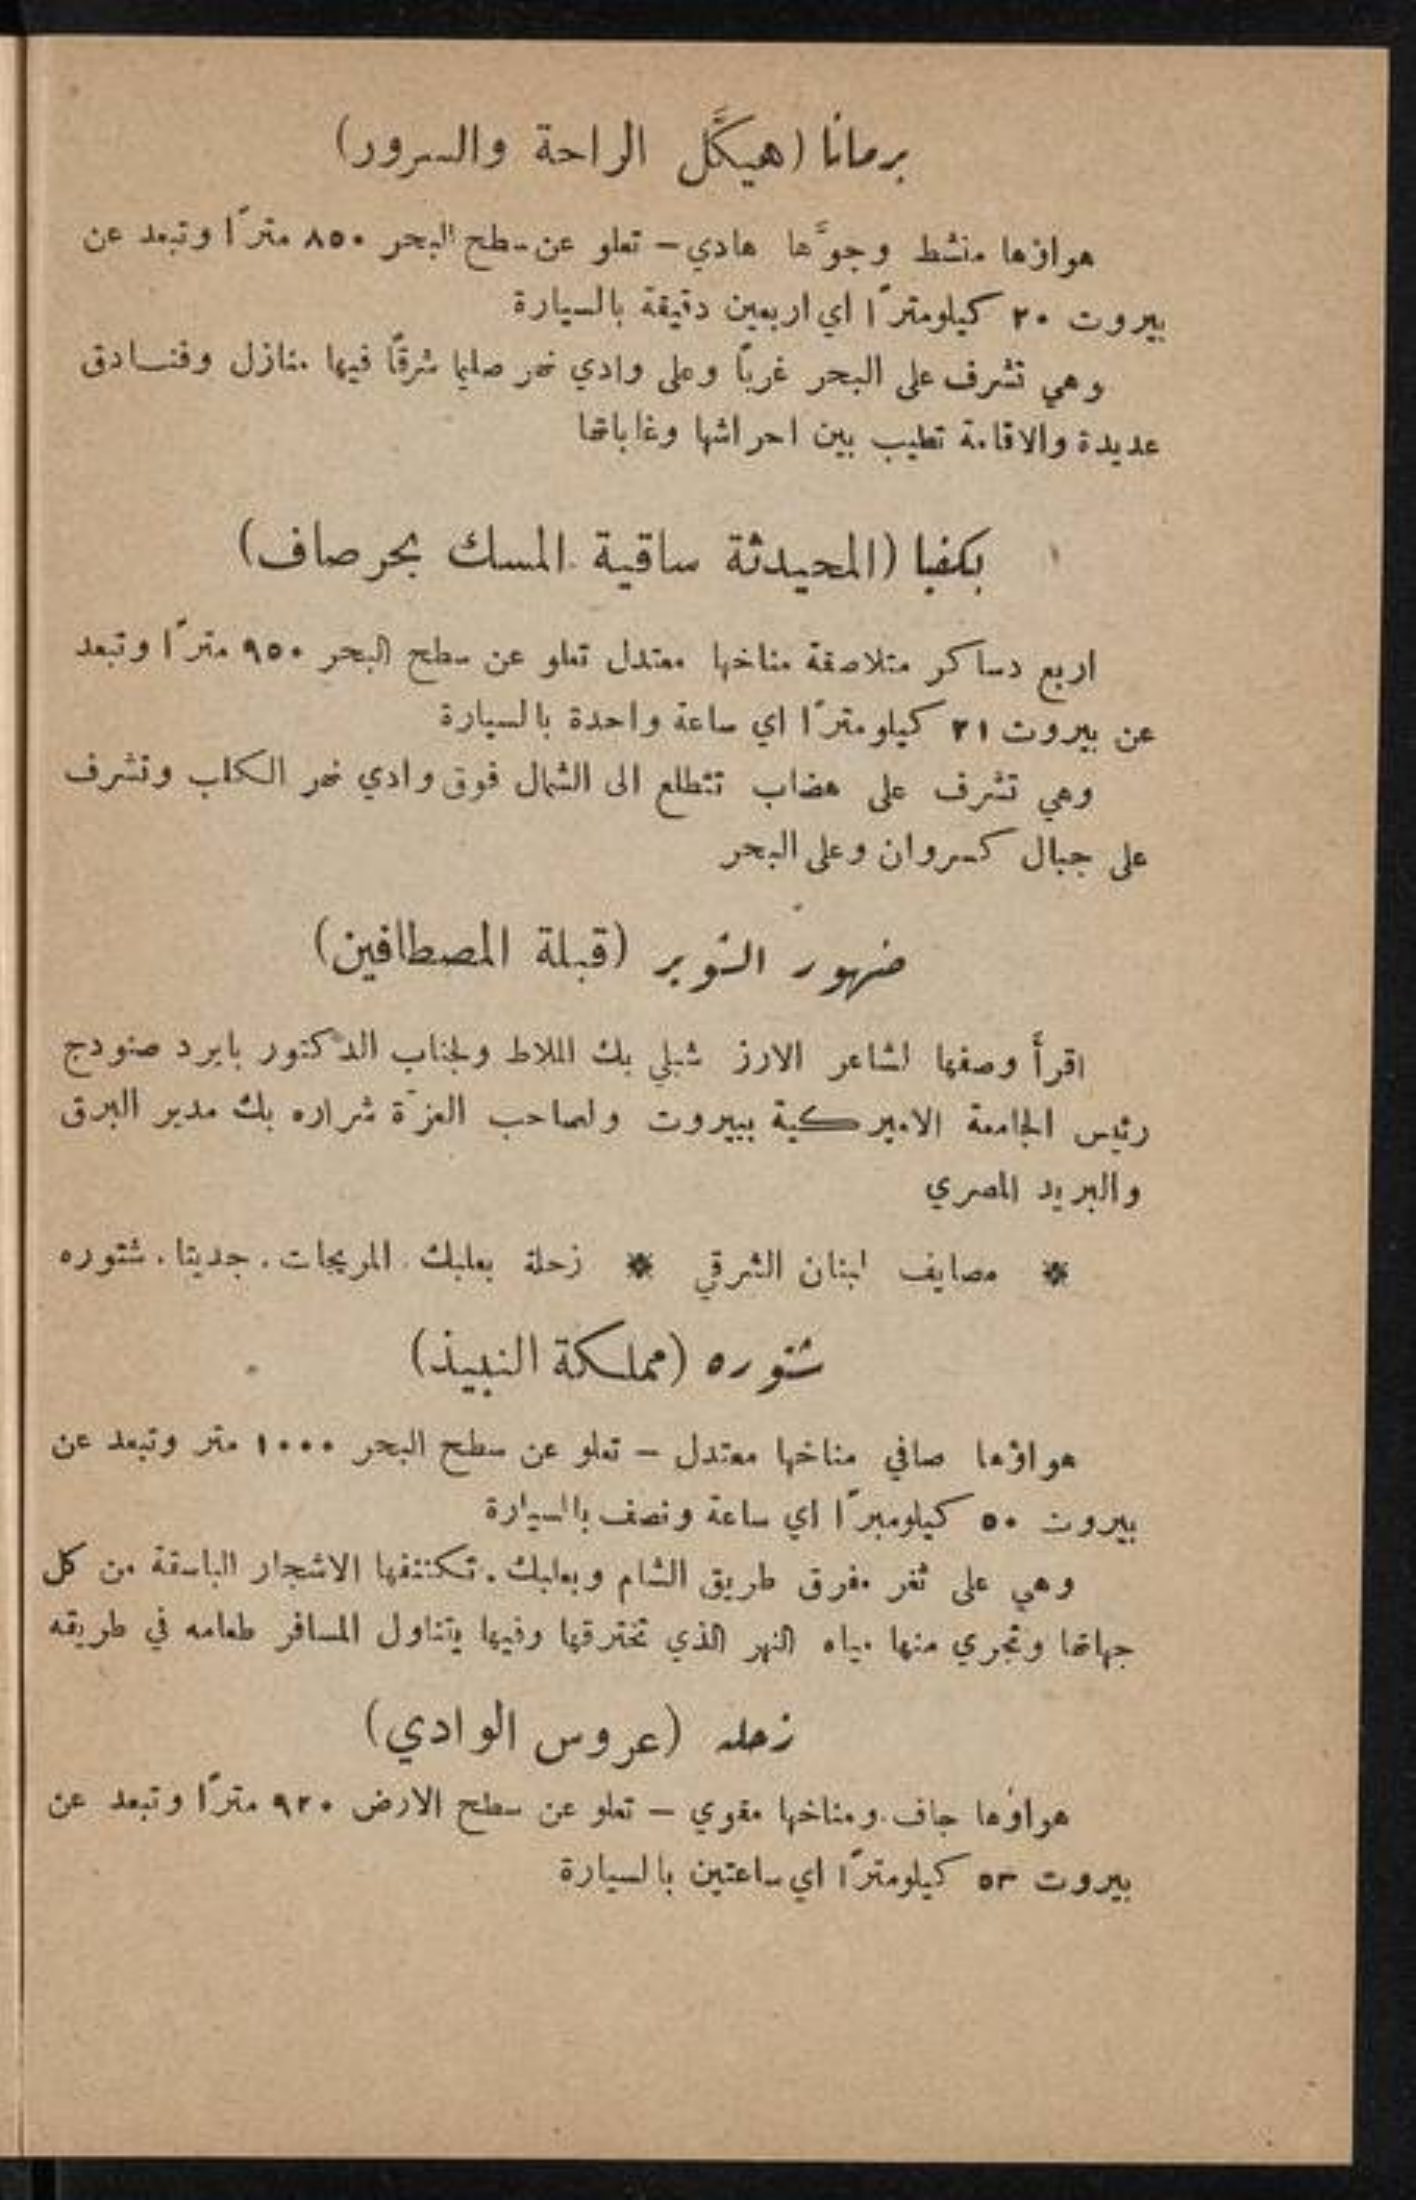 برمانا (هيكل الراحة والسرور)
هواؤها منشط وجوَّها هادي – تعلو عن سطح البحر ٨٥٠ مترًا وتبعد عن
بيروت ٢٠ كيلومترًا اي اربعين دقيقة بالسيارة
وهي تشرف على البحر غربًا وعلى وادي نهر صليما شرقًا فيها منازل وفنادق
عديدة والاقامة تطيب بين احراشها وغاباتها
بكفيا (المحيدثة ساقية المسك بحرصاف)
اربع دساكر متلاصقة مناخها معتدل تعلو عن سطح البحر ٩٥٠ مترًا وتبعد
عن بيروت ٢١ كيلومترًا اي ساعة واحدة بالسيارة
وهي تشرف على هضاب تتطلع الى الشمال فوق وادي نهر الكلب وتشرف
على جبال كسروان وعلى البحر
ضهور الشوير (قبلة المصطافين)
اقرأ وصفها لشاعر الارز شبلي بك الملاط ولجناب الدكتور بايرد ضودج
رئيس الجامعة الاميركية ببيروت ولصاحب العزّة شراره بك مدير البرق
والبريد المصري
* مصايف لبنان الشرقي * زحلة بعلبك . المريجات . جديتا . شتوره
شتوره (مملكة النبيذ)
هواؤها صافي مناخها معتدل – تعلو عن سطح البحر ١٠٠٠ متر وتبعد عن
بيروت ٥٠ كيلومبرًا اي ساعة ونصف بالسيارة
وهي على ثغر مفرق طريق الشام وبعلبك . تكتنفها الاشجار الباسقة من كل
جهاتها وتجري منها مياه النهر الذي تخترقها وفيها يتناول المسافر طعامه في طريقه
زحله (عروس الوادي)
هواؤها جاف ومناخها مقوي – تعلو عن سطح الارض ٩٢٠ مترًا وتبعد عن
بيروت ٥٣ كيلومترًا اي ساعتين بالسيارة